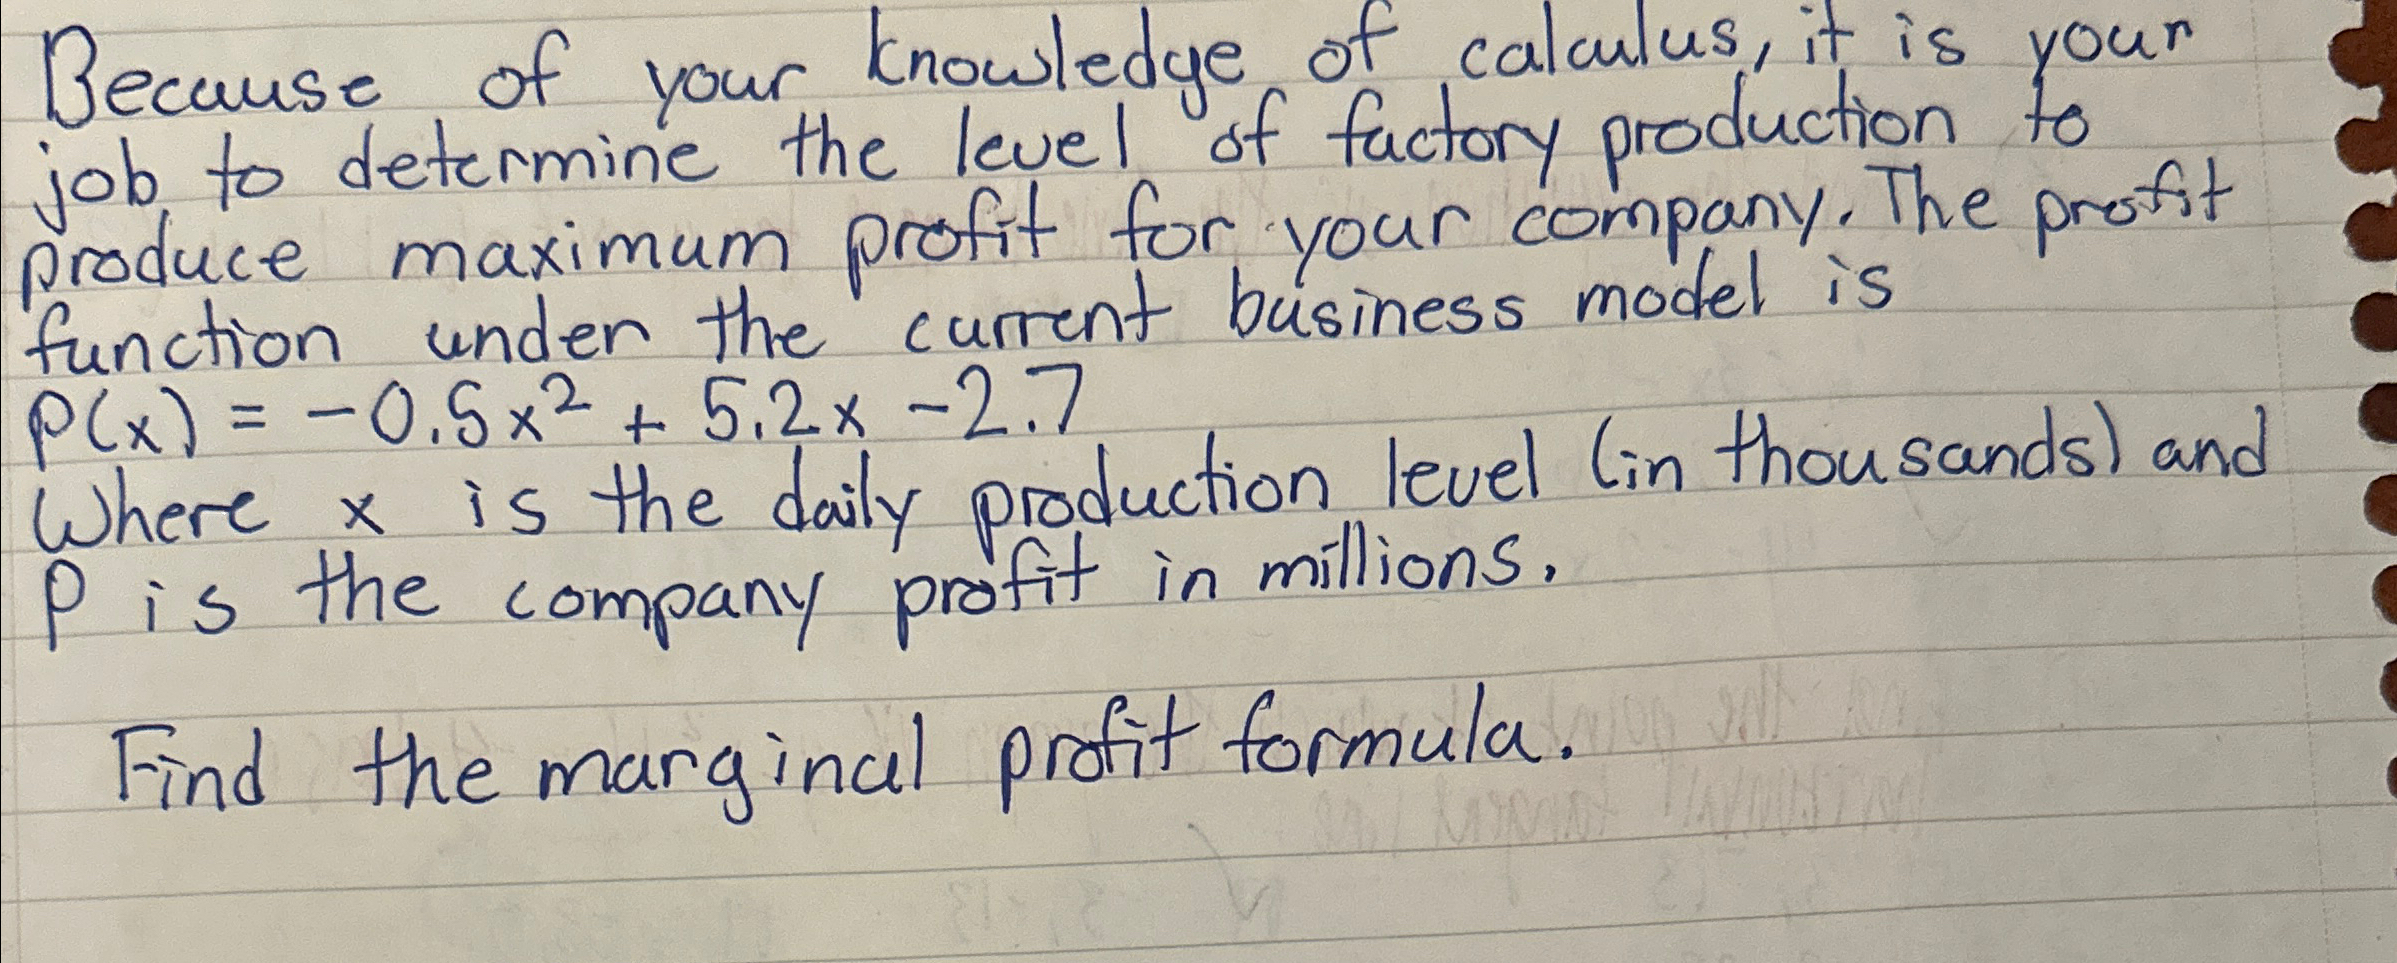 Because of your knowledge of calculus, it is your
job to determine the level of factory production to
produce maximum profit for your company. The profit
function under the current business model is
P(x) = -0.5x² + 5.2x -2.7
Where x is the daily production level (in thousands) and
P is the company profit in millions.
Find the marginal profit formula.